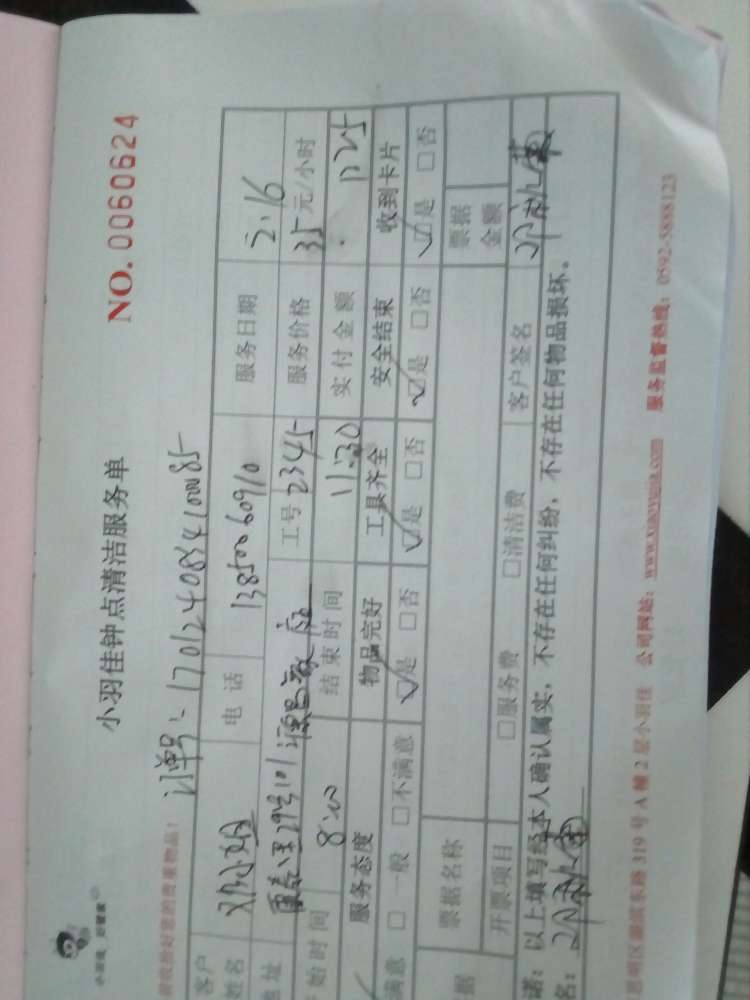 小羽佳钟点清洁服务单
NO. 0060624
订单号：170124084100085
客户姓名 电话 13850060910 服务日期 2.16
地址 工号 2345 服务价格 35元/小时
开始时间 8:00 结束时间 11:30 实付金额
服务态度 物品完好 工具齐全 安全结束 收到卡片
满意 □一般 □不满意 ☑是 □否 ☑是 □否 ☑是 □否 ☑是 □否
票据名称 票据金额
开票项目 □服务费 □清洁费 客户签名
诺：以上填写经本人确认属实，不存在任何纠纷，不存在任何物品损坏。
名：
思明区湖滨东路319号A幢2层小羽佳 公司网站：www.xiaoyujia.com 服务监督热线：0592-5888123